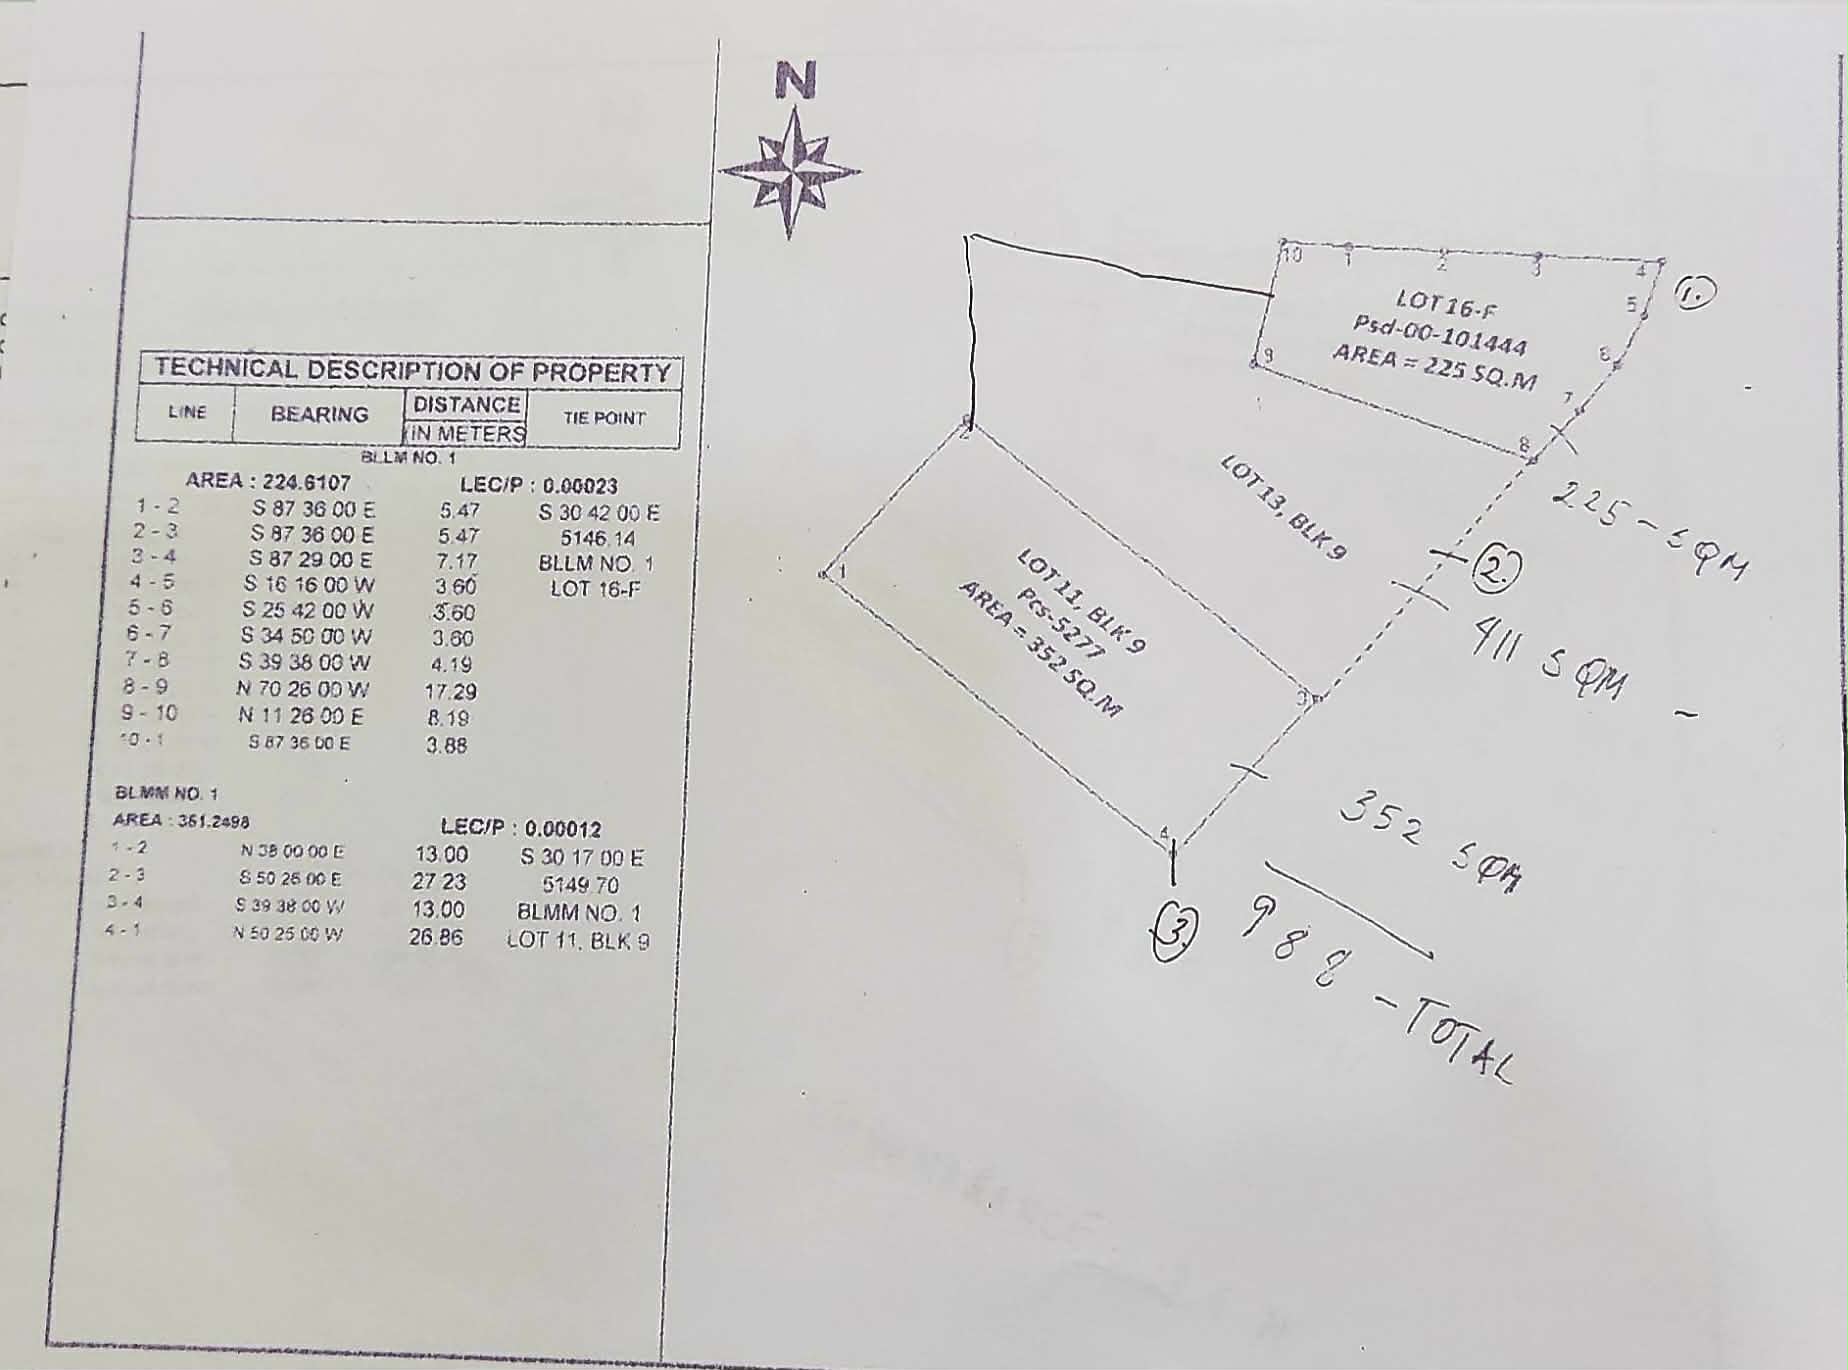 N
TECHNICAL DESCRIPTION OF PROPERTY
LINE BEARING DISTANCE IN METERS TIE POINT
BLLM NO. 1
AREA : 224.6107 LEC/P : 0.00023
1 - 2 S 87 36 00 E 5.47 S 30 42 00 E
2 - 3 S 87 36 00 E 5.47 5146.14
3 - 4 S 87 29 00 E 7.17 BLLM NO. 1
4 - 5 S 16 16 00 W 3.60 LOT 16-F
5 - 6 S 25 42 00 W 3.60
6 - 7 S 34 50 00 W 3.60
7 - 8 S 39 38 00 W 4.19
8 - 9 N 70 26 00 W 17.29
9 - 10 N 11 26 00 E 8.19
10 - 1 S 87 36 00 E 3.88
BLMM NO. 1
AREA : 351.2498 LEC/P : 0.00012
1 - 2 N 38 00 00 E 13.00 S 30 17 00 E
2 - 3 S 50 26 00 E 27.23 5149.70
3 - 4 S 39 38 00 W 13.00 BLMM NO. 1
4 - 1 N 50 25 00 W 26.86 LOT 11, BLK 9
10 1 2 3 4
5
6
7
8
9
LOT 16-F
Psd-00-101444
AREA = 225 SQ.M
1.
225 - SQM
LOT 13, BLK 9
2.
411 SQM -
2
1
3
4
LOT 11, BLK 9
Pcs-5277
AREA = 352 SQ.M
352 SQM
3.
988 - TOTAL